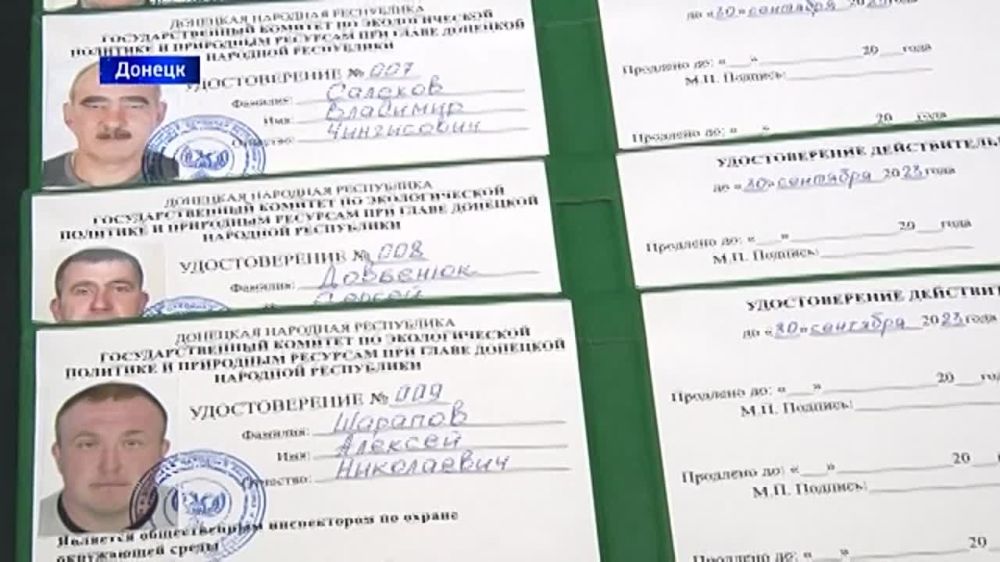 ДОНЕЦКАЯ НАРОДНАЯ РЕСПУБЛИКА
ГОСУДАРСТВЕННЫЙ КОМИТЕТ ПО ЭКОЛОГИЧЕСКОЙ
ПОЛИТИКЕ И ПРИРОДНЫМ РЕСУРСАМ ПРИ ГЛАВЕ ДОНЕЦКОЙ
НАРОДНОЙ РЕСПУБЛИКИ
Донецк
УДОСТОВЕРЕНИЕ № 007
Фамилия: Салехов
Имя: Владимир
Отчество: Чингисович
до «30» сентября 2023 года
Продлено до: «___» ______ 20___года
М.П. Подпись:
Продлено до: «___» ______ 20___года
ДОНЕЦКАЯ НАРОДНАЯ РЕСПУБЛИКА
ГОСУДАРСТВЕННЫЙ КОМИТЕТ ПО ЭКОЛОГИЧЕСКОЙ
ПОЛИТИКЕ И ПРИРОДНЫМ РЕСУРСАМ ПРИ ГЛАВЕ ДОНЕЦКОЙ
НАРОДНОЙ РЕСПУБЛИКИ
УДОСТОВЕРЕНИЕ № 008
Фамилия: Довбенюк
Сергей
УДОСТОВЕРЕНИЕ ДЕЙСТВИТЕЛЬ
до «30» сентября 2023 года
Продлено до: «___» ______ 20___года
М.П. Подпись:
ДОНЕЦКАЯ НАРОДНАЯ РЕСПУБЛИКА
ГОСУДАРСТВЕННЫЙ КОМИТЕТ ПО ЭКОЛОГИЧЕСКОЙ
ПОЛИТИКЕ И ПРИРОДНЫМ РЕСУРСАМ ПРИ ГЛАВЕ ДОНЕЦКОЙ
НАРОДНОЙ РЕСПУБЛИКИ
УДОСТОВЕРЕНИЕ № 009
Фамилия: Шарапов
Имя: Алексей
Отчество: Николаевич
Является общественным инспектором по охране
окружающей среды
УДОСТОВЕРЕНИЕ ДЕЙСТВИТ
до «30» сентября 2023 года
Продлено до: «___» ______ 20___года
М.П. Подпись:
Продлено до: «___» ______ 20
М.П. Подпись:
Продлено до: «___» ______ 20